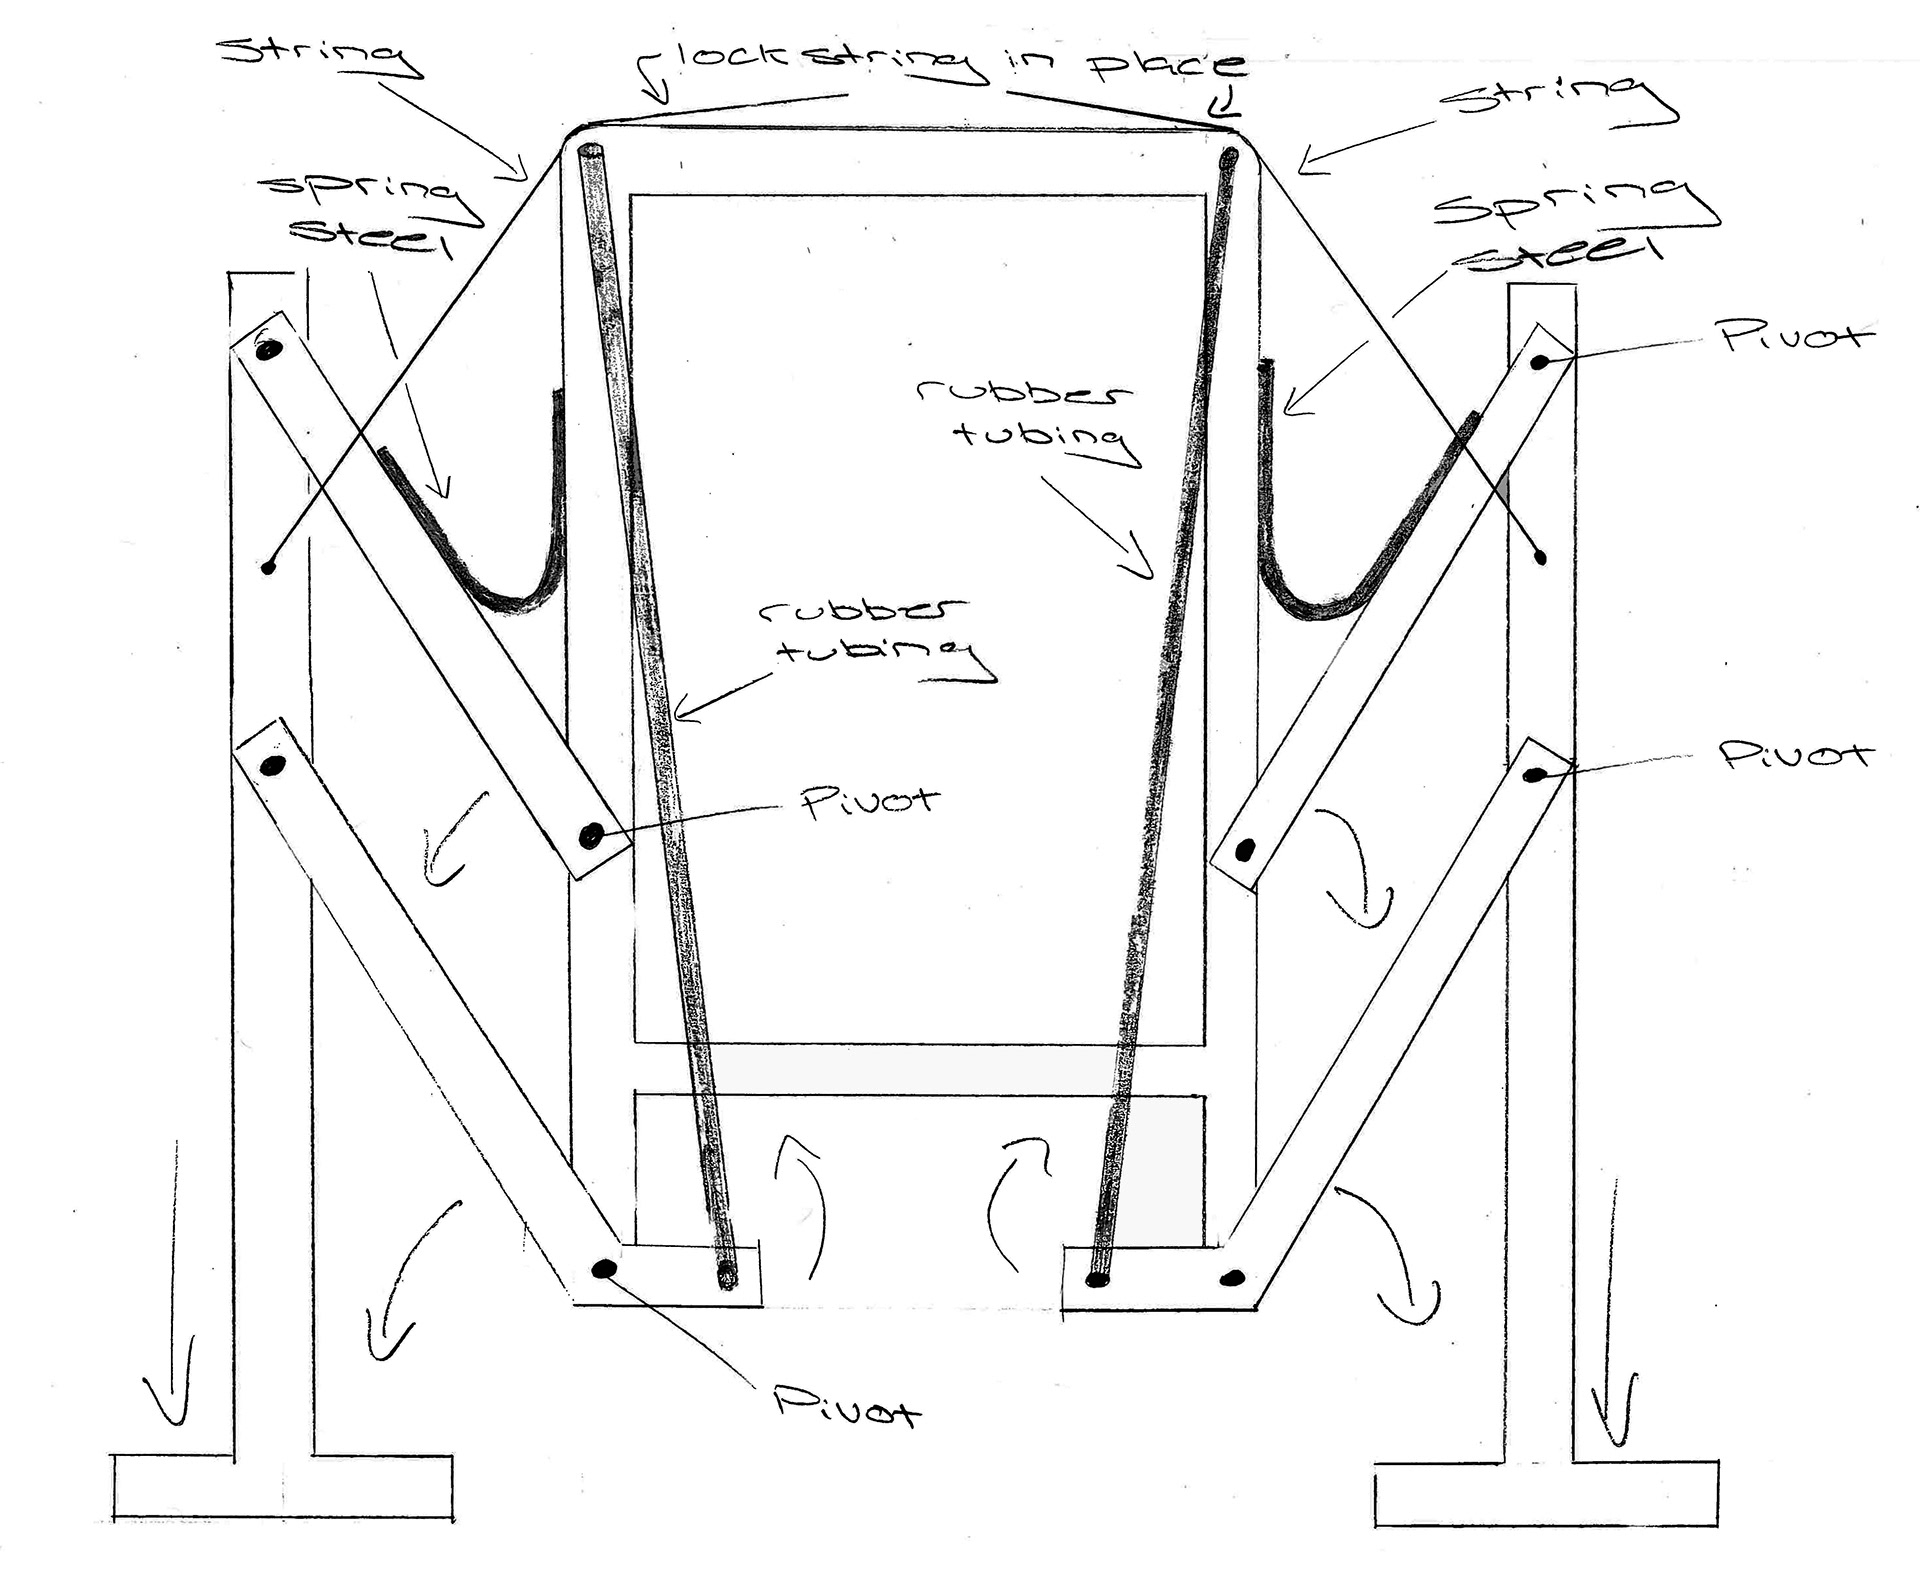 string
lock string in place
string
spring
steel
spring
steel
Pivot
rubber
tubing
rubber
tubing
Pivot
Pivot
Pivot